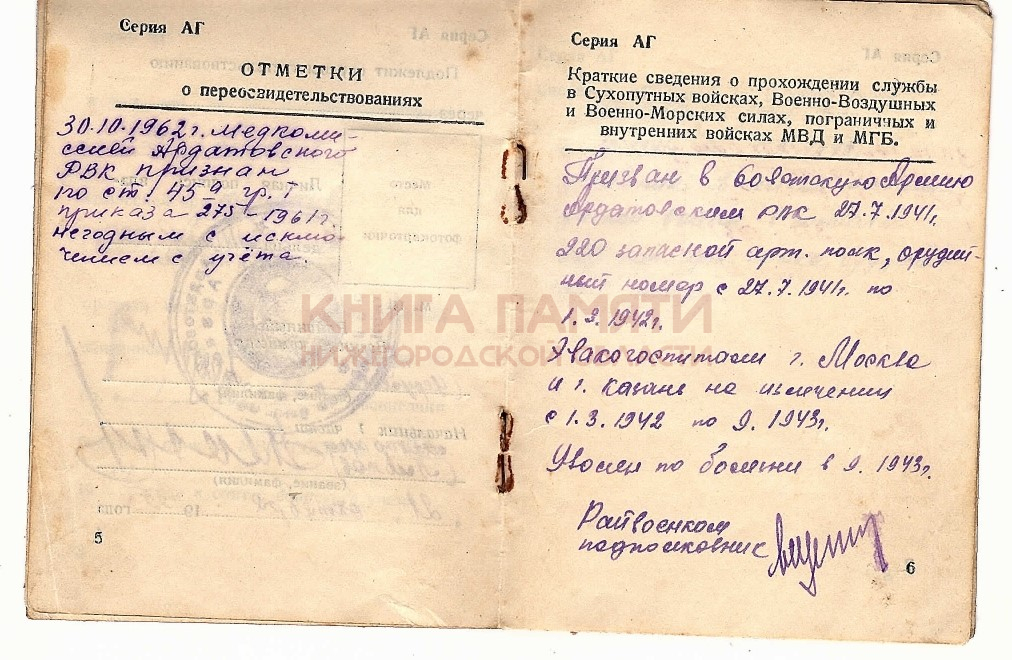 Серия АГ
ОТМЕТКИ
о переосвидетельствованиях
30.10.1962 г. Медкоми-
ссией Ардатовского
РВК признан
по ст. 45 гр. I
приказа 275-1961 г.
негодным с исклю-
чением с учёта.
5
Серия АГ
Краткие сведения о прохождении службы
в Сухопутных войсках, Военно-Воздушных
и Военно-Морских силах, пограничных и
внутренних войсках МВД и МГБ.
Призван в Советскую Армию
Ардатовским РВК 27.7.1941г.
220 запасной арт. полк, орудий-
ный номер с 27.7.1941г. по
1.3.1942г.
Эвакогоспитали г. Москва
и г. Казань на излечении
с 1.3.1942 по 9.1943г.
Уволен по болезни в 9.1943г.
Райвоенком
подполковник
6
КНИГА ПАМЯТИ
НИЖЕГОРОДСКОЙ ОБЛАСТИ